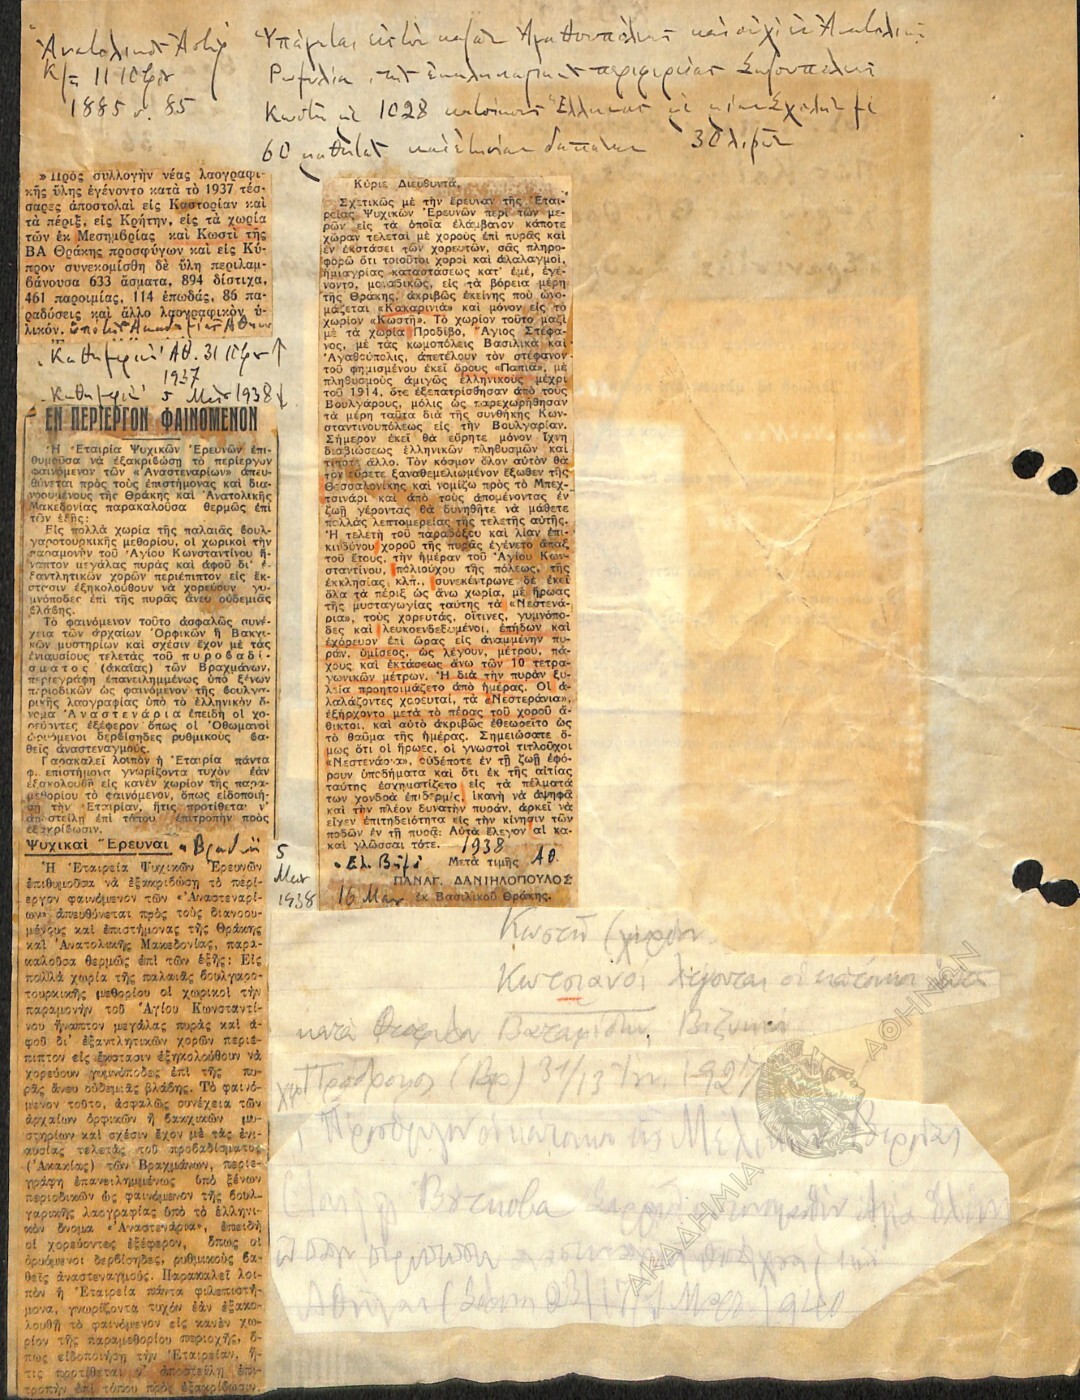 Ἀνατολικὸς Ἀστὴρ
1885 σ. 85
Ὑπάγεται εἰς τὸν καζᾶν Ἀγαθουπόλεως καὶ οὐχὶ εἰς Ἀνατολικ.
Ρωμυλία, τῆς ἐκκλησιαστικῆς περιφερείας Σωζουπόλεως
Κωστῆ μὲ 1028 κατοίκους Ἕλληνας μὲ μίαν Σχολὴν μὲ
60 μαθητὰς καὶ ἐτησίαν δαπάνην 30 λιρῶν
» Πρὸς συλλογὴν νέας λαογραφι-
κῆς ὕλης ἐγένοντο κατὰ τὸ 1937 τέσ-
σαρες ἀποστολαὶ εἰς Καστορίαν καὶ
τὰ πέριξ, εἰς Κρήτην, εἰς τὰ χωρία
τῶν ἐκ Μεσημβρίας καὶ Κωστὶ τῆς
ΒΑ Θράκης προσφύγων καὶ εἰς Κύ-
προν συνεκομίσθη δὲ ὕλη περιλαμ-
βάνουσα 633 ᾄσματα, 894 δίστιχα,
461 παροιμίας, 114 ἐπωδάς, 86 πα-
ραδόσεις καὶ ἄλλο λαογραφικὸν ὑ-
λικόν. ὑπὸ τῆς Ἀκαδημίας Ἀθηνῶν
«Καθημερινὴ» Ἀθ. 31
1937
Καθημερινὴ 5 Μαρ 1938
ΕΝ ΠΕΡΙΕΡΓΟΝ ΦΑΙΝΟΜΕΝΟΝ
Ἡ Ἑταιρία Ψυχικῶν Ἐρευνῶν ἐπι-
θυμοῦσα νὰ ἐξακριβώσῃ τὸ περίεργον
φαινόμενον τῶν «Ἀναστεναρίων» ἀπευ-
θύνεται πρὸς τοὺς ἐπιστήμονας καὶ δια-
νοουμένους τῆς Θράκης καὶ Ἀνατολικῆς
Μακεδονίας παρακαλοῦσα θερμῶς ἐπὶ
τῶν ἑξῆς:
Εἰς πολλὰ χωρία τῆς παλαιᾶς βουλ-
γαροτουρκικῆς μεθορίου, οἱ χωρικοὶ τὴν
παραμονὴν τοῦ Ἁγίου Κωνσταντίνου ἤ-
ναπτον μεγάλας πυρὰς καὶ ἀφοῦ δι' ἐ-
ξαντλητικῶν χορῶν περιέπιπτον εἰς ἔκ-
στασιν ἐξηκολούθουν νὰ χορεύουν γυ-
μνόποδες ἐπὶ τῆς πυρᾶς ἄνευ οὐδεμιᾶς
βλάβης.
Τὸ φαινόμενον τοῦτο ἀσφαλῶς συνέ-
χεια τῶν ἀρχαίων Ὀρφικῶν ἢ Βακχι-
κῶν μυστηρίων καὶ σχέσιν ἔχον μὲ τὰς
ἐνιαυσίους τελετὰς τοῦ πυροβαδί-
σματος (ἀκαΐας) τῶν Βραχμάνων,
περιεγράφη ἐπανειλημμένως ὑπὸ ξένων
περιοδικῶν ὡς φαινόμενον τῆς βουλγα-
ρικῆς λαογραφίας ὑπὸ τὸ ἑλληνικὸν ὄ-
νομα Ἀναστενάρια ἐπειδὴ οἱ χο-
ρεύοντες ἐξέφερον ὅπως οἱ Ὀθωμανοὶ
ὠρυόμενοι δερβίσηδες ρυθμικοὺς βα-
θεῖς ἀναστεναγμούς.
Παρακαλεῖ λοιπὸν ἡ Ἑταιρία πάντα
φ. ἐπιστήμονα γνωρίζοντα τυχὸν ἐὰν
ἐξακολουθῇ εἰς κανὲν χωρίον τῆς παρα-
μεθορίου τὸ φαινόμενον, ὅπως εἰδοποιή-
σῃ τὴν Ἑταιρίαν, ἥτις προτίθεται ν'
ἀποστείλῃ ἐπὶ τόπου ἐπιτροπὴν πρὸς
ἐξακρίβωσιν.
Ψυχικαὶ Ἔρευναι
5
Μαρ
1938
Ἡ Ἑταιρεία Ψυχικῶν Ἐρευνῶν
ἐπιθυμοῦσα νὰ ἐξακριβώσῃ τὸ περί-
εργον φαινόμενον τῶν «Ἀναστεναρί-
ων» ἀπευθύνεται πρὸς τοὺς διανοου-
μένους καὶ ἐπιστήμονας τῆς Θράκης
καὶ Ἀνατολικῆς Μακεδονίας, παρα-
καλοῦσα θερμῶς ἐπὶ τῶν ἑξῆς: Εἰς
πολλὰ χωρία τῆς παλαιᾶς βουλγαρο-
τουρκικῆς μεθορίου οἱ χωρικοὶ τὴν
παραμονὴν τοῦ Ἁγίου Κωνσταντί-
νου ἤναπτον μεγάλας πυρὰς καὶ ἀ-
φοῦ δι' ἐξαντλητικῶν χορῶν περιέ-
πιπτον εἰς ἔκστασιν ἐξηκολούθουν νὰ
χορεύουν γυμνόποδες ἐπὶ τῆς πυ-
ρᾶς ἄνευ οὐδεμιᾶς βλάβης. Τὸ φαινό-
μενον τοῦτο, ἀσφαλῶς συνέχεια τῶν
ἀρχαίων ὀρφικῶν ἢ βακχικῶν μυ-
στηρίων καὶ σχέσιν ἔχον μὲ τὰς ἐνι-
αυσίας τελετὰς τοῦ προβαδίσματος
(Ἀκακίας) τῶν Βραχμάνων, περιε-
γράφη ἐπανειλημμένως ὑπὸ ξένων
περιοδικῶν ὡς φαινόμενον τῆς βουλ-
γαρικῆς λαογραφίας ὑπὸ τὸ ἑλληνι-
κὸν ὄνομα «Ἀναστενάρια», ἐπειδὴ
οἱ χορεύοντες ἐξέφερον, ὅπως οἱ
ὀρυόμενοι δερβίσηδες, ρυθμικοὺς βα-
θεῖς ἀναστεναγμούς. Παρακαλεῖ λοι-
πὸν ἡ Ἑταιρεία πάντα φιλεπιστή-
μονα, γνωρίζοντα τυχὸν ἐὰν ἐξακο-
λουθῇ τὸ φαινόμενον εἰς κανὲν χω-
ρίον τῆς παραμεθορίου περιοχῆς, ὅ-
πως εἰδοποιήσῃ τὴν Ἑταιρείαν, ἥ-
τις προτίθεται ν' ἀποστείλῃ ἐπι-
τροπὴν ἐπὶ τόπου πρὸς ἐξακρίβωσιν.
Κύριε Διευθυντά,
Σχετικῶς μὲ τὴν ἔρευναν τῆς Ἑται-
ρείας Ψυχικῶν Ἐρευνῶν περὶ τῶν με-
ρῶν εἰς τὰ ὁποῖα ἐλάμβανον κάποτε
χώραν τελεταὶ μὲ χοροὺς ἐπὶ πυρᾶς καὶ
ἐν ἐκστάσει τῶν χορευτῶν, σᾶς πληρο-
φορῶ ὅτι τοιοῦτοι χοροὶ καὶ ἀλαλαγμοί,
ἡμιαγρίας καταστάσεως κατ' ἐμέ, ἐγέ-
νοντο, μοναδικῶς, εἰς τὰ βόρεια μέρη
τῆς Θράκης, ἀκριβῶς ἐκείνης ποὺ ὠνο-
μάζεται «Κακαρινιὰ» καὶ μόνον εἰς τὸ
χωρίον «Κωστῆ». Τὸ χωρίον τοῦτο μαζὶ
μὲ τὰ χωρία Προδίβο, Ἅγιος Στέφα-
νος, μὲ τὰς κωμοπόλεις Βασιλικὰ καὶ
Ἀγαθούπολις, ἀπετέλουν τὸν στέφανον
τοῦ φημισμένου ἐκεῖ ὄρους «Παπιά», μὲ
πληθυσμοὺς ἀμιγῶς ἑλληνικοὺς μέχρι
τοῦ 1914, ὅτε ἐξεπατρίσθησαν ἀπὸ τοὺς
Βουλγάρους, μόλις ὡς παρεχωρήθησαν
τὰ μέρη ταῦτα διὰ τῆς συνθήκης Κων-
σταντινουπόλεως εἰς τὴν Βουλγαρίαν.
Σήμερον ἐκεῖ θὰ εὕρητε μόνον ἴχνη
διαβιώσεως ἑλληνικῶν πληθυσμῶν καὶ
τίποτε ἄλλο. Τὸν κόσμον ὅλον αὐτὸν θὰ
τὸν εὕρετε ξαναθεμελιωμένον ἔξωθεν τῆς
Θεσσαλονίκης καὶ νομίζω πρὸς τὸ Μπεχ-
τσινάρι καὶ ἀπὸ τοὺς ἀπομένοντας ἐν
ζωῇ γέροντας θὰ δυνηθῆτε νὰ μάθετε
πολλὰς λεπτομερείας τῆς τελετῆς αὐτῆς.
Ἡ τελετὴ τοῦ παραδόξου καὶ λίαν ἐπι-
κινδύνου χοροῦ τῆς πυρᾶς ἐγένετο ἅπαξ
τοῦ ἔτους, τὴν ἡμέραν τοῦ Ἁγίου Κων-
σταντίνου, πολιούχου τῆς πόλεως, τῆς
ἐκκλησίας κλπ., συνεκέντρωνε δὲ ἐκεῖ
ὅλα τὰ πέριξ ὡς ἄνω χωρία, μὲ ἥρωας
τῆς μυσταγωγίας ταύτης τὰ «Νεστενά-
ρια», τοὺς χορευτάς, οἵτινες, γυμνόπο-
δες καὶ λευκοενδεδυμένοι, ἐπήδων καὶ
ἐχόρευον ἐπὶ ὥρας εἰς ἀναμμένην πυ-
ράν, ὑμίσεος, ὡς λέγουν, μέτρου, πά-
χους καὶ ἐκτάσεως ἄνω τῶν 10 τετρα-
γωνικῶν μέτρων. Ἡ διὰ τὴν πυρὰν ξυ-
λεία προητοιμάζετο ἀπὸ ἡμέρας. Οἱ ἀ-
λαλάζοντες χορευταί, τὰ «Νεστεράνια»,
ἐξήρχοντο μετὰ τὸ πέρας τοῦ χοροῦ ἄ-
θικτοι, καὶ αὐτὸ ἀκριβῶς ἐθεωρεῖτο ὡς
τὸ θαῦμα τῆς ἡμέρας. Σημειώσατε ὅ-
μως ὅτι οἱ ἥρωες, οἱ γνωστοὶ τιτλοῦχοι
«Νεστενάρια», οὐδέποτε ἐν τῇ ζωῇ ἐφό-
ρουν ὑποδήματα καὶ ὅτι ἐκ τῆς αἰτίας
ταύτης ἐσχηματίζετο εἰς τὰ πέλματά
των χονδρὰ ἐπιδερμίς, ἱκανὴ νὰ ἀψηφᾷ
καὶ τὴν πλέον δυνατὴν πυράν, ἀρκεῖ νὰ
εἶχεν ἐπιτηδειότητα εἰς τὴν κίνησιν τῶν
ποδῶν ἐν τῇ πυρᾷ: Αὐτὰ ἔλεγον αἱ κα-
καὶ γλῶσσαι τότε. 1938
«Ἐλ. Βῆμα» Μετὰ τιμῆς Ἀθ.
ΠΑΝΑΓ. ΔΑΝΙΗΛΟΠΟΥΛΟΣ
16 Μαρ ἐκ Βασιλικοῦ Θράκης.
Κωστῆ (χωρίον)
Κωτσιανοὶ λέγονται οἱ κάτοικοι
κατὰ
Πρόδρομος
Πρόσφυγες οἱ κάτοικοι εἰς Μελίκη Βερροίας
ΑΚΑΔΗΜΙΑ ΑΘΗΝΩΝ